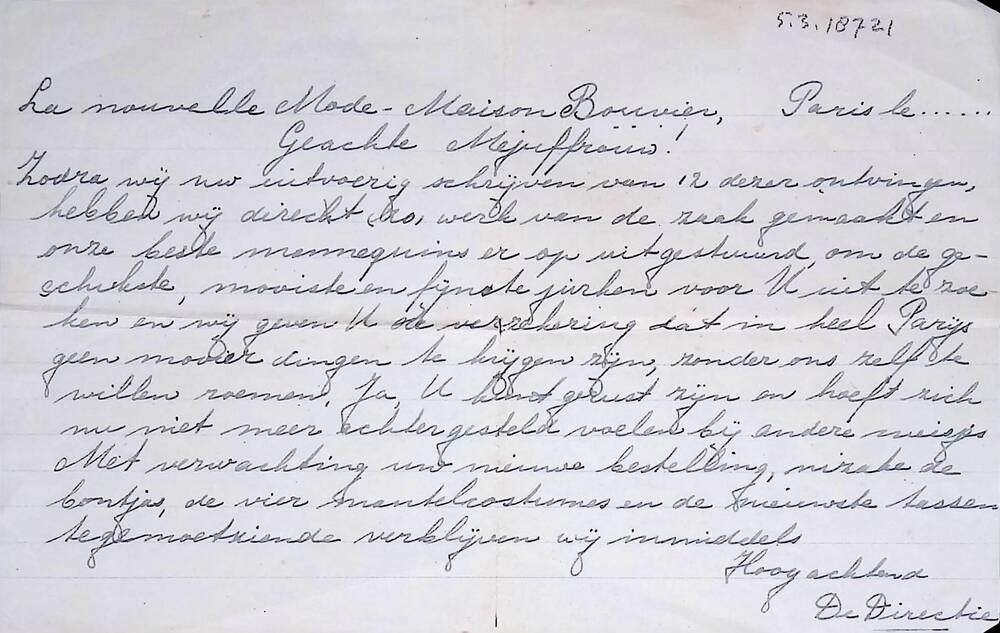 5.3.18721
La nouvelle Mode - Maison Bouvier, Paris le......
Geachte Mejuffrouw!
Zodra wij uw uitvoerig schrijven van 12 dezer ontvingen,
hebben wij direct, zo, werk van de zaak gemaakt en
onze beste mannequins er op uitgestuurd, om de ge-
schikste, mooiste en fijnste jurken voor U uit te zoe-
ken en wij geven U de verzekering dat in heel Parijs
geen mooier dingen te krijgen zijn, zonder ons zelf te
willen roemen. Ja, U kunt gerust zijn en hoeft zich
nu niet meer achtergesteld voelen bij andere meisjes
Met verwachting uw nieuwe bestelling, inzake de
bontjas, de vier mantelcostumes en de nieuwste tassen
tegemoetziende verblijven wij inmiddels
Hoogachtend
De Directie